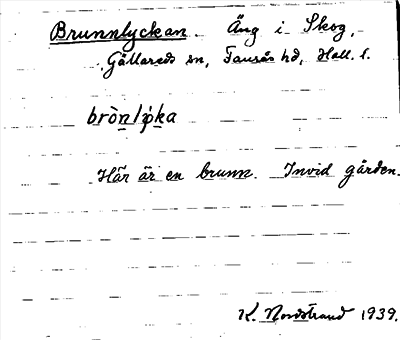 Brunnlyckan. Äng i Skog,
Gällareds sn, Faurås hd, Hall. l.
Här är en brunn. Invid gården.
K. Nordstrand 1939.